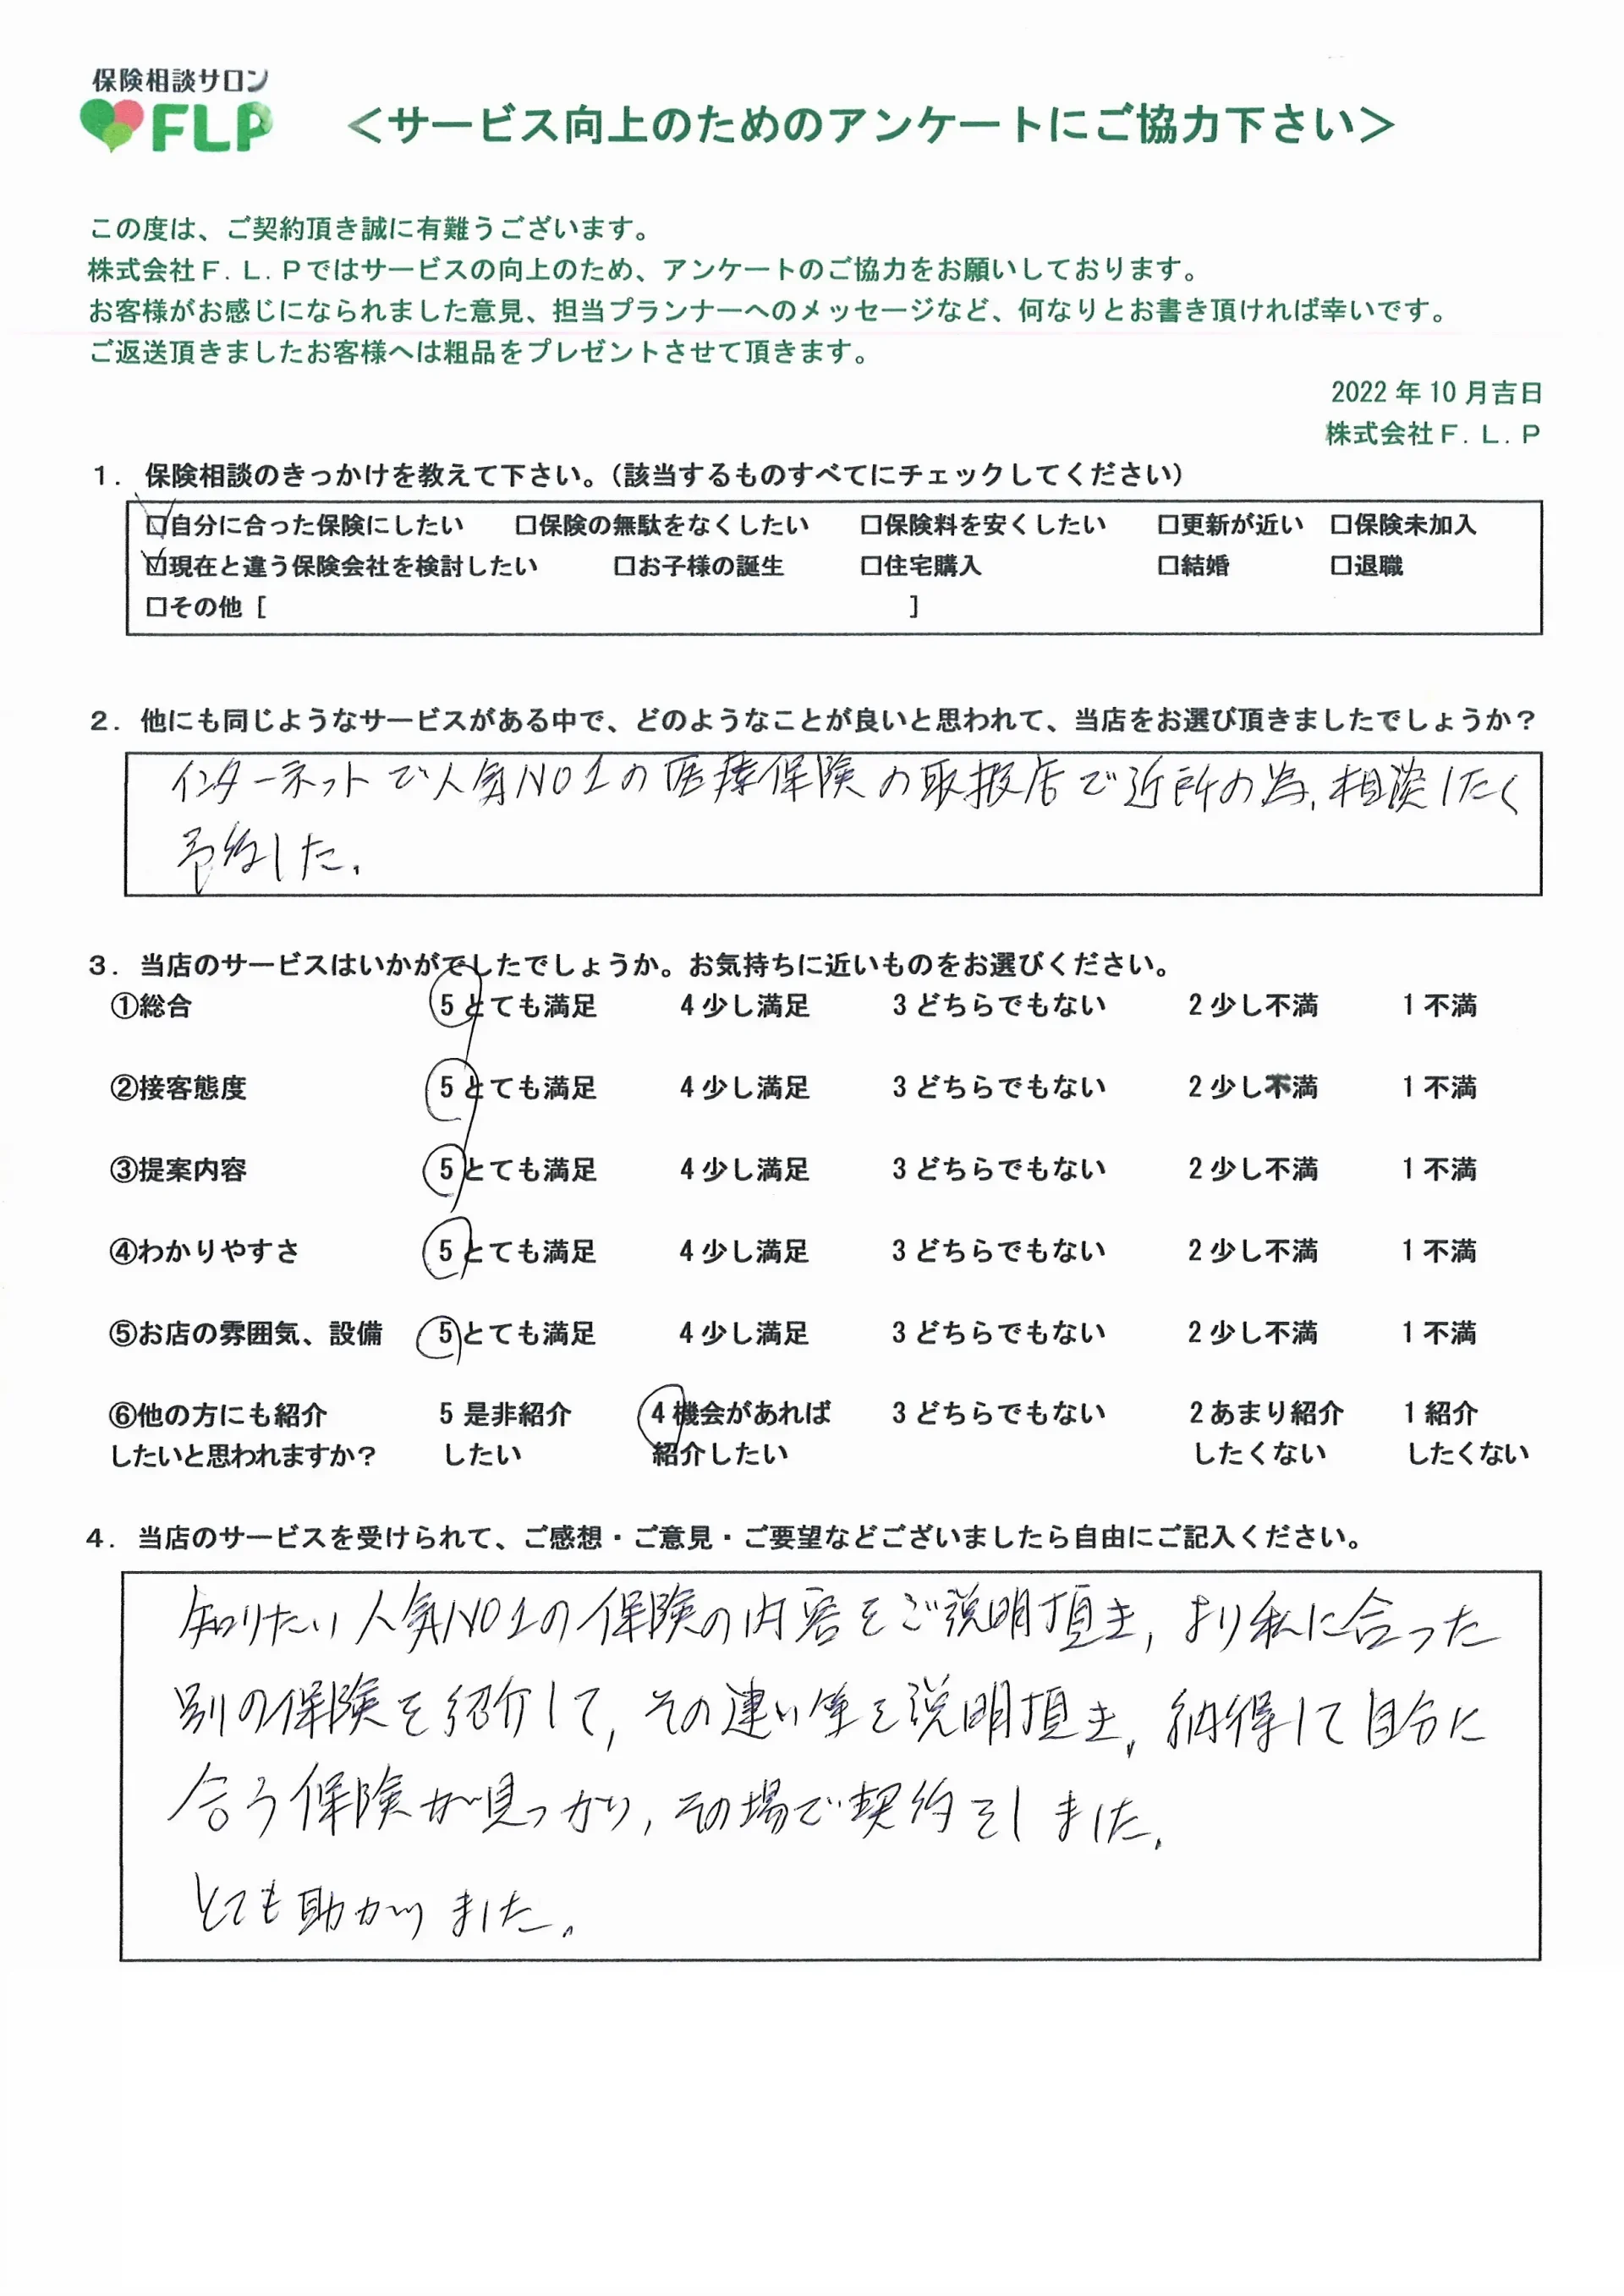 保険相談サロン
FLP
＜サービス向上のためのアンケートにご協力下さい＞
この度は、ご契約頂き誠に有難うございます。
株式会社F.L.Pではサービスの向上のため、アンケートのご協力をお願いしております。
お客様がお感じになられました意見、担当プランナーへのメッセージなど、何なりとお書き頂ければ幸いです。
ご返送頂きましたお客様へは粗品をプレゼントさせて頂きます。
2022年10月吉日
株式会社F.L.P
1. 保険相談のきっかけを教えて下さい。（該当するものすべてにチェックしてください）
☑自分に合った保険にしたい □保険の無駄をなくしたい □保険料を安くしたい □更新が近い □保険未加入
☑現在と違う保険会社を検討したい □お子様の誕生 □住宅購入 □結婚 □退職
□その他 [ ]
2. 他にも同じようなサービスがある中で、どのようなことが良いと思われて、当店をお選び頂きましたでしょうか？
インターネットで人気NO1の医療保険の取扱店で近所の為、相談したく
予約した。
3. 当店のサービスはいかがでしたでしょうか。お気持ちに近いものをお選びください。
①総合 5 とても満足 4 少し満足 3 どちらでもない 2 少し不満 1 不満
②接客態度 5 とても満足 4 少し満足 3 どちらでもない 2 少し不満 1 不満
③提案内容 5 とても満足 4 少し満足 3 どちらでもない 2 少し不満 1 不満
④わかりやすさ 5 とても満足 4 少し満足 3 どちらでもない 2 少し不満 1 不満
⑤お店の雰囲気、設備 5 とても満足 4 少し満足 3 どちらでもない 2 少し不満 1 不満
⑥他の方にも紹介 5 是非紹介 4 機会があれば 3 どちらでもない 2 あまり紹介 1 紹介
したいと思われますか？ したい 紹介したい したくない したくない
4. 当店のサービスを受けられて、ご感想・ご意見・ご要望などございましたら自由にご記入ください。
知りたい人気NO1の保険の内容をご説明頂き、より私に合った
別の保険を紹介して、その違い等を説明頂き、納得して自分に
合う保険が見つかり、その場で契約をしました。
とても助かりました。